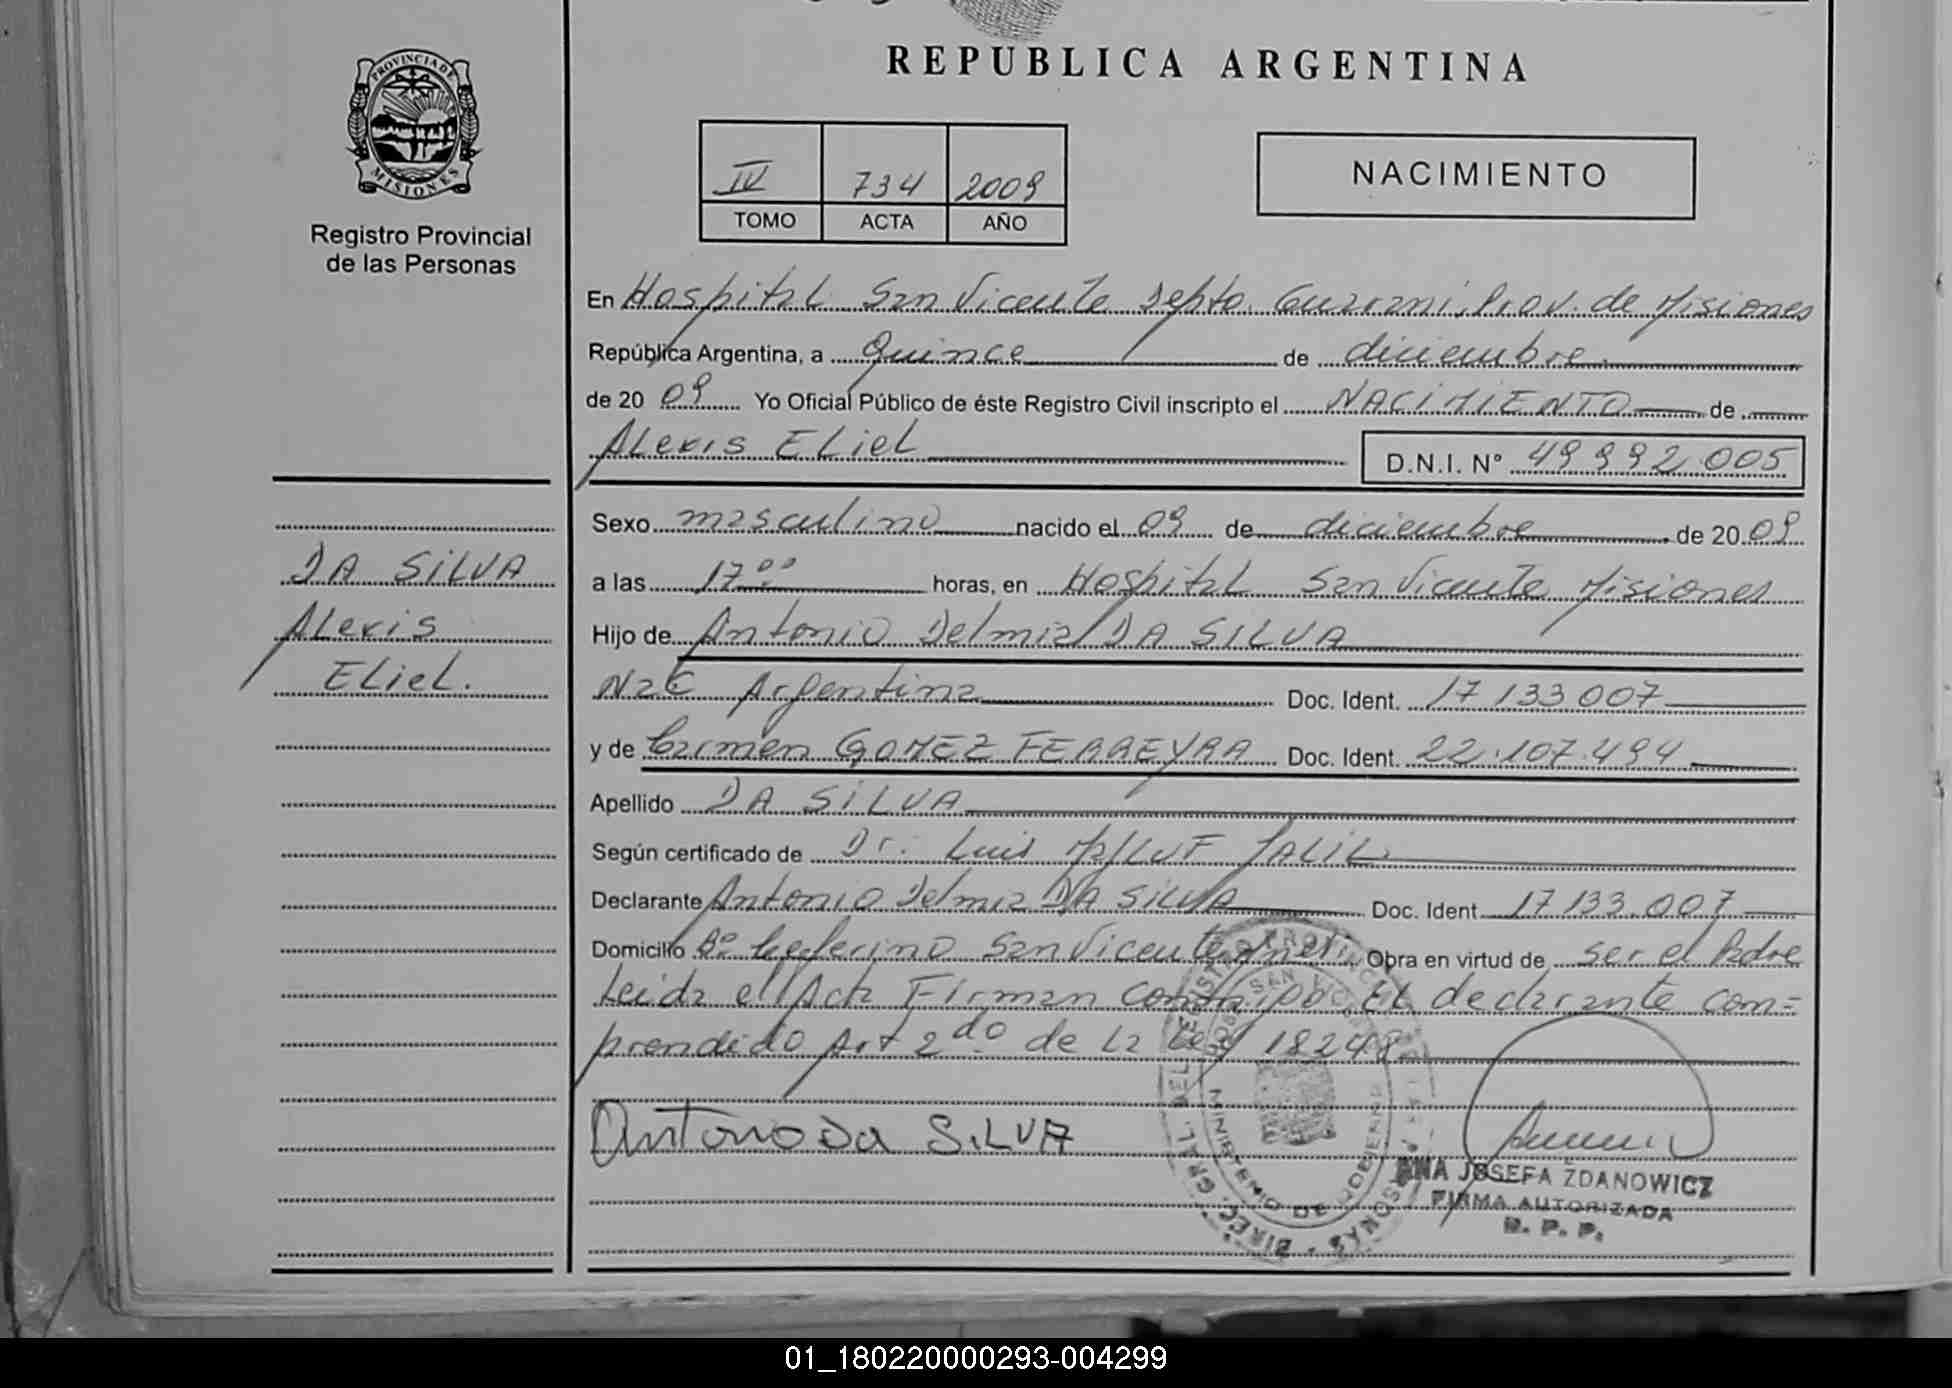 PROVINCIA DE
MISIONES
Registro Provincial
de las Personas
DA SILVA
Alexis
ELieL.
REPUBLICA ARGENTINA
IV 734 2009
TOMO ACTA AÑO
NACIMIENTO
En Hospital San Vicente Depto. Guarani, Prov. de Misiones
República Argentina, a Quince de diciembre
de 20 09 Yo Oficial Público de éste Registro Civil inscripto el NACIMIENTO de
Alexis ELieL D.N.I. N° 49992005
Sexo masculino nacido el 09 de diciembre de 20 09
a las 17 00 horas, en Hospital San Vicente Misiones
Hijo de Antonio Delmiz DA SILVA
Nac Argentina Doc. Ident. 17 133 007
y de Carmen GOMEZ FERREYRA Doc. Ident. 22.107.494
Apellido DA SILVA
Según certificado de Dr. Luis JALIL
Declarante Antonio Delmiz DA SILVA Doc. Ident. 17 133.007
Domicilio B° Ceferino San Vicente Mnes. Obra en virtud de ser el Padre
Leida el Acta Firman conmigo EL declarante com=
prendido Art 2do de La Ley 18248
Antonio Da SiLVA
MINISTERIO DE GOBIERNO
ANA JOSEFA ZDANOWICZ
FIRMA AUTORIZADA
R. P. P.
01_180220000293-004299